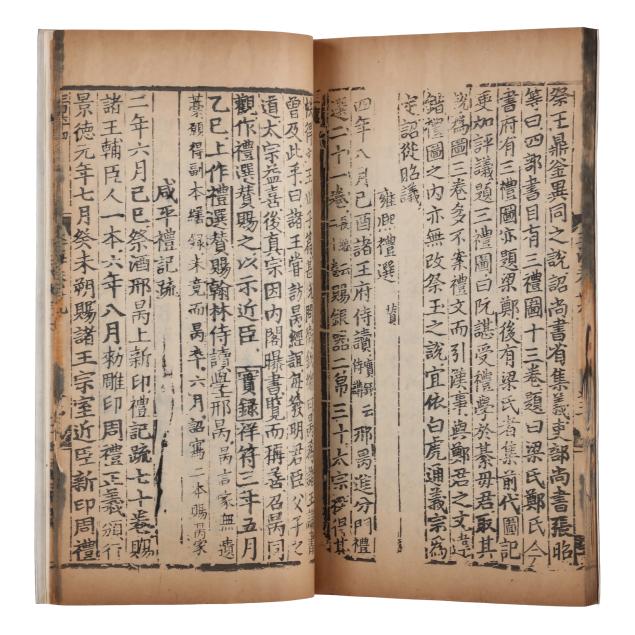 祭玉鼎釜異同之說詔尚書省集議吏部尚書張昭
等曰四部書目有三禮圖十三卷題曰梁氏鄭氏今
書府有三禮圖亦題梁鄭後有梁氏者集前代圖記
更加評議題三禮圖曰阮諶受禮學於綦毋君取其
說為圖三卷多不案禮文而引漢事與鄭君之文違
錯禮圖之內亦無改祭玉之說宜依白虎通義宗為
定詔從昭議
雍熙禮選 贊
四年八月己酉諸王府侍讀實錄侍講云邢昺進分門禮
選二十一卷賜銀器二帛三十太宗探得其
曾及此乎曰諸王嘗訪昺經誼每發明君臣父子之
道太宗益喜後真宗因內閣曝書覽而稱善召昺同
觀作禮選贊賜之以示近臣 實錄祥符三年五月
乙巳上作禮選贊賜翰林侍讀學士邢昺昺言家無遺
藁願得副本繕錄未竟而昺卒六月詔寫二本賜昺家
咸平禮記疏
二年六月己巳祭酒邢昺上新印禮記疏七十卷賜
諸王輔臣人一本六年八月勅雕印周禮正義頒行
景德元年七月癸未朔賜諸王宗室近臣新印周禮